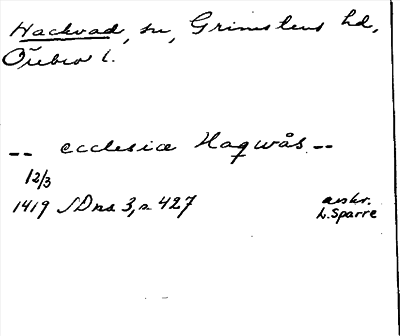 Hackvad, sn, Grimstens hd,
Örebro l.
-- ecclesiæ Haqwås --
12/3
1419 SDns 3, s 427 avskr.
L. Sparre